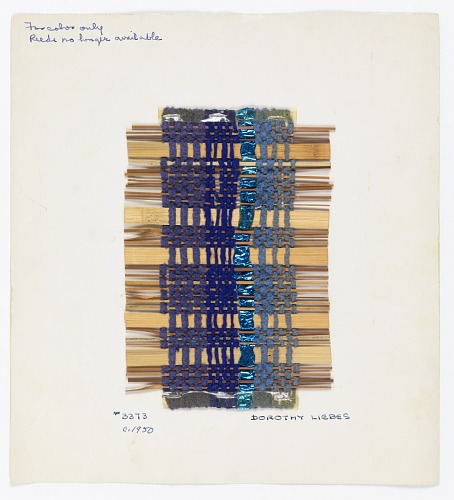 For color only
Reeds no longer available
#3373
DOROTHY LIEBES
c. 1950